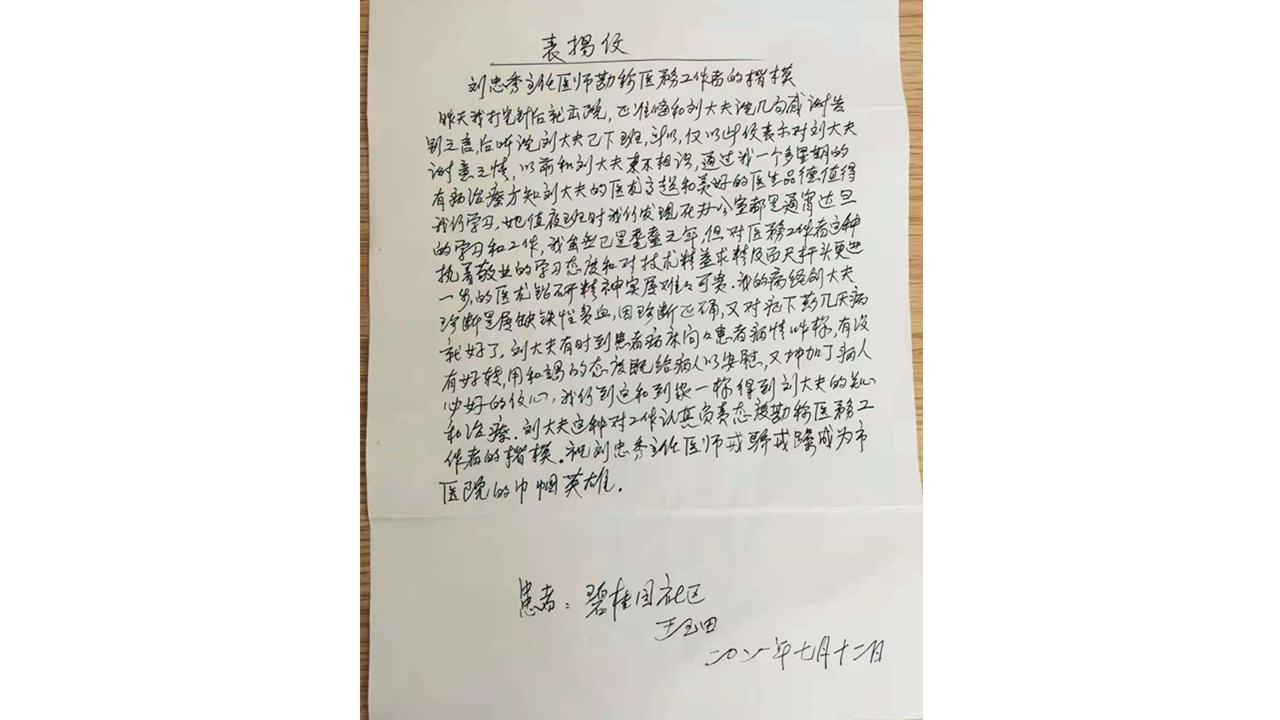 表揚信
刘忠秀主任医师勘称医務工作者的楷模
昨天我打完针后就出院,正准备和刘大夫说几句感谢告
别之言,后听说刘大夫已下班,所以,仅以此信表示对刘大夫
谢意之情,以前和刘大夫素不相识,通过我一个多星期的
有病治療方知刘大夫的医术高超和美好的医生品德值得
我们学习,她值夜班时我们发现在办公室都是通宵达旦
的学习和工作,我虽然已是耄耋之年,但对医務工作者这种
执著敬业的学习态度和对技术精益求精及百尺杆头更进
一步,的医术钻研精神实属难々可贵.我的病经刘大夫
珍断是属缺铁性贫血,因珍断正确,又对症下药几天病
就好了,刘大夫有时到患者病床间々患者病情咋样,有没
有好转,用和謁的态度既给病人以安慰,又增加了病人
必好的信心,我们到这和到家一样得到刘大夫的关心
和治療.刘大夫这种对工作认真负责态度勘称医務工
作者的楷模.祝刘忠秀主任医师戒骄戒躁成为市
医院的巾帼英雄.
患者:碧桂园社区
王玉田
二〇二一年七月十二日